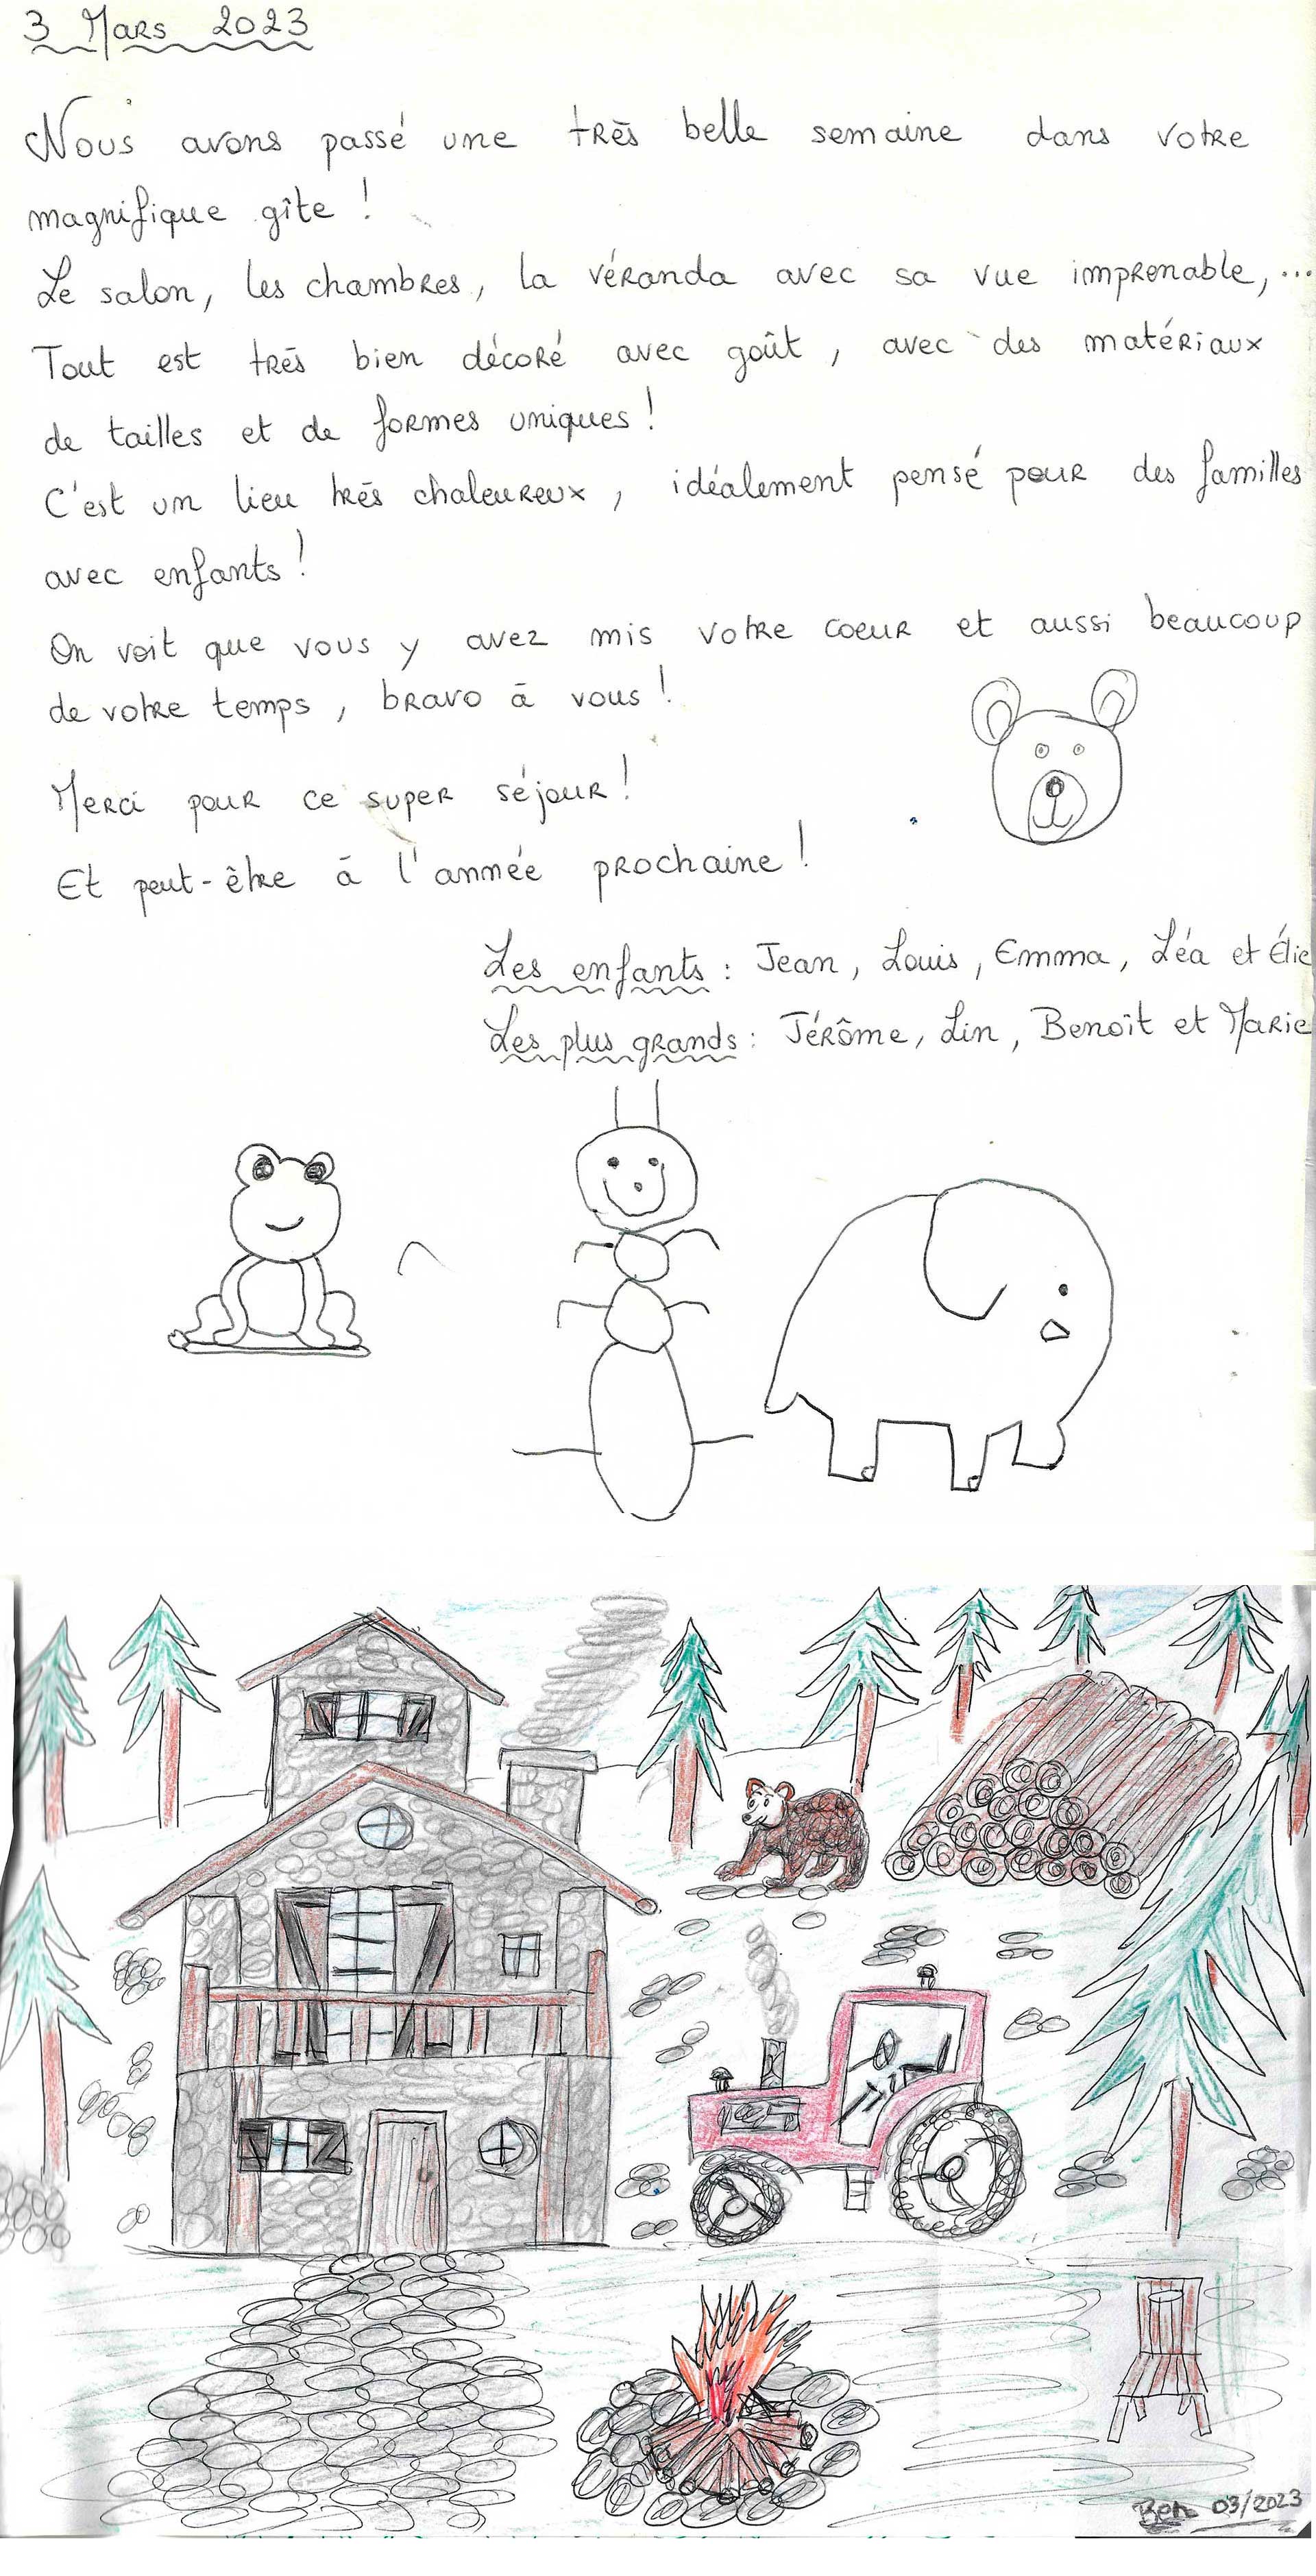 3 Mars 2023
Nous avons passé une très belle semaine dans votre
magnifique gîte !
Le salon, les chambres, la véranda avec sa vue imprenable, ...
Tout est très bien décoré avec goût, avec des matériaux
de tailles et de formes uniques !
C'est un lieu très chaleureux, idéalement pensé pour des familles
avec enfants !
On voit que vous y avez mis votre coeur et aussi beaucoup
de votre temps, bravo à vous !
Merci pour ce super séjour !
Et peut-être à l'année prochaine !
Les enfants : Jean, Louis, Emma, Léa et Élie
Les plus grands : Jérôme, Lin, Benoît et Marie
Ben 03/2023